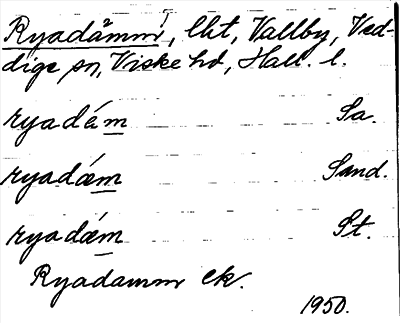 Ryadamm, lht, Vallby, Ved-
dige sn, Viske hd, Hall. l.
ryadám Sa.
ryadǽm Sand.
ryadǽm St.
Ryadamm ek.
1950.